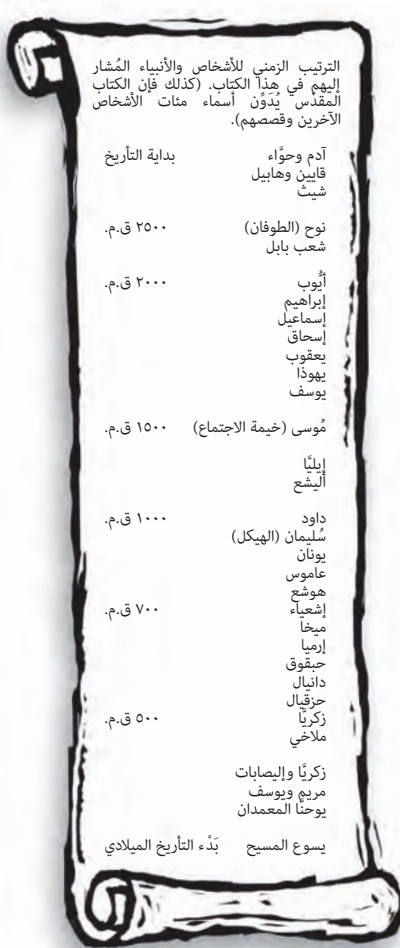 الترتيب الزمني للأشخاص والأنبياء المُشار
إليهم في هذا الكتاب. (كذلك فإن الكتاب
المقدَّس يُدَوِّن أسماء مئات الأشخاص
الآخرين وقصصهم).
آدم وحوَّاء بداية التأريخ
قايين وهابيل
شيث
نوح (الطوفان) ٢٥٠٠ ق.م.
شعب بابل
أيُّوب ٢٠٠٠ ق.م.
إبراهيم
إسماعيل
إسحاق
يعقوب
يهوذا
يوسف
مُوسى (خيمة الاجتماع) ١٥٠٠ ق.م.
إيليَّا
أليشع
داود ١٠٠٠ ق.م.
سُليمان (الهيكل)
يونان
عاموس
هوشع
إشعياء ٧٠٠ ق.م.
ميخا
إرميا
حبقوق
دانيال
حزقيال
زكريَّا ٥٠٠ ق.م.
ملاخي
زكريَّا وإليصابات
مريم ويوسف
يوحنَّا المعمدان
يسوع المسيح بَدْء التأريخ الميلادي